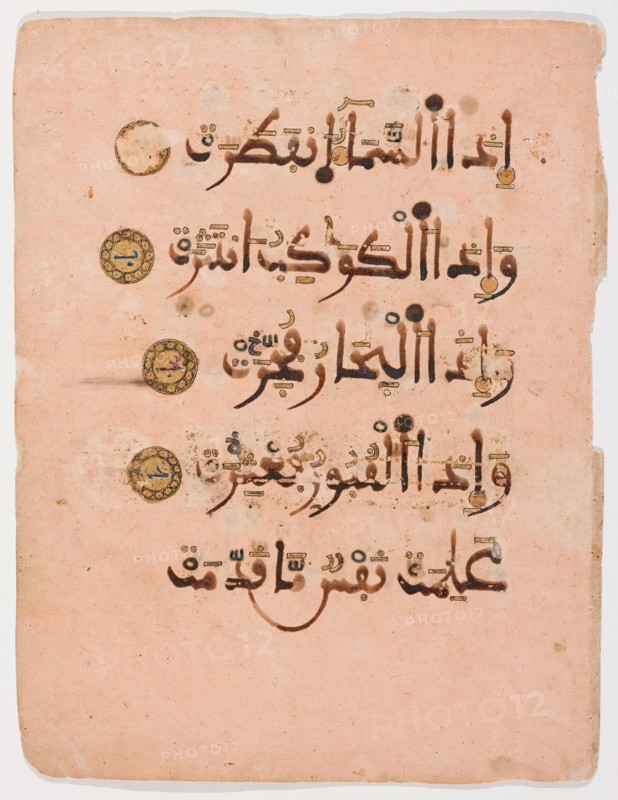 إِذَا اَ۬لسَّمَآءُ اُ۪نفَطَرَتْ
وَإِذَا اَ۬لْكَوَاكِبُ اُ۪نتَثَرَتْ
وَإِذَا اَ۬لْبِحَارُ فُجِّرَتْ
وَإِذَا اَ۬لْقُبُورُ بُعْثِرَتْ
عَلِمَتْ نَفْسٌ مَّا قَدَّمَتْ
PHOTO12